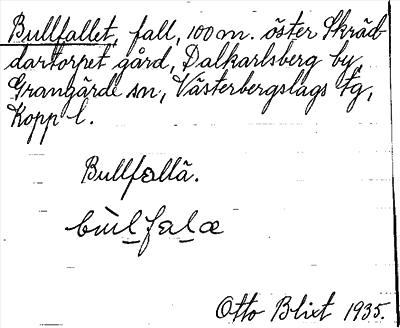 Bullfallet, fall, 100 m. öster Skräd
dartorpet gård, Dalkarlsberg by,
Grangärde sn, Västerbergslags tg,
Kopp. l.
Bullfallä.
Otto Blixt 1935.